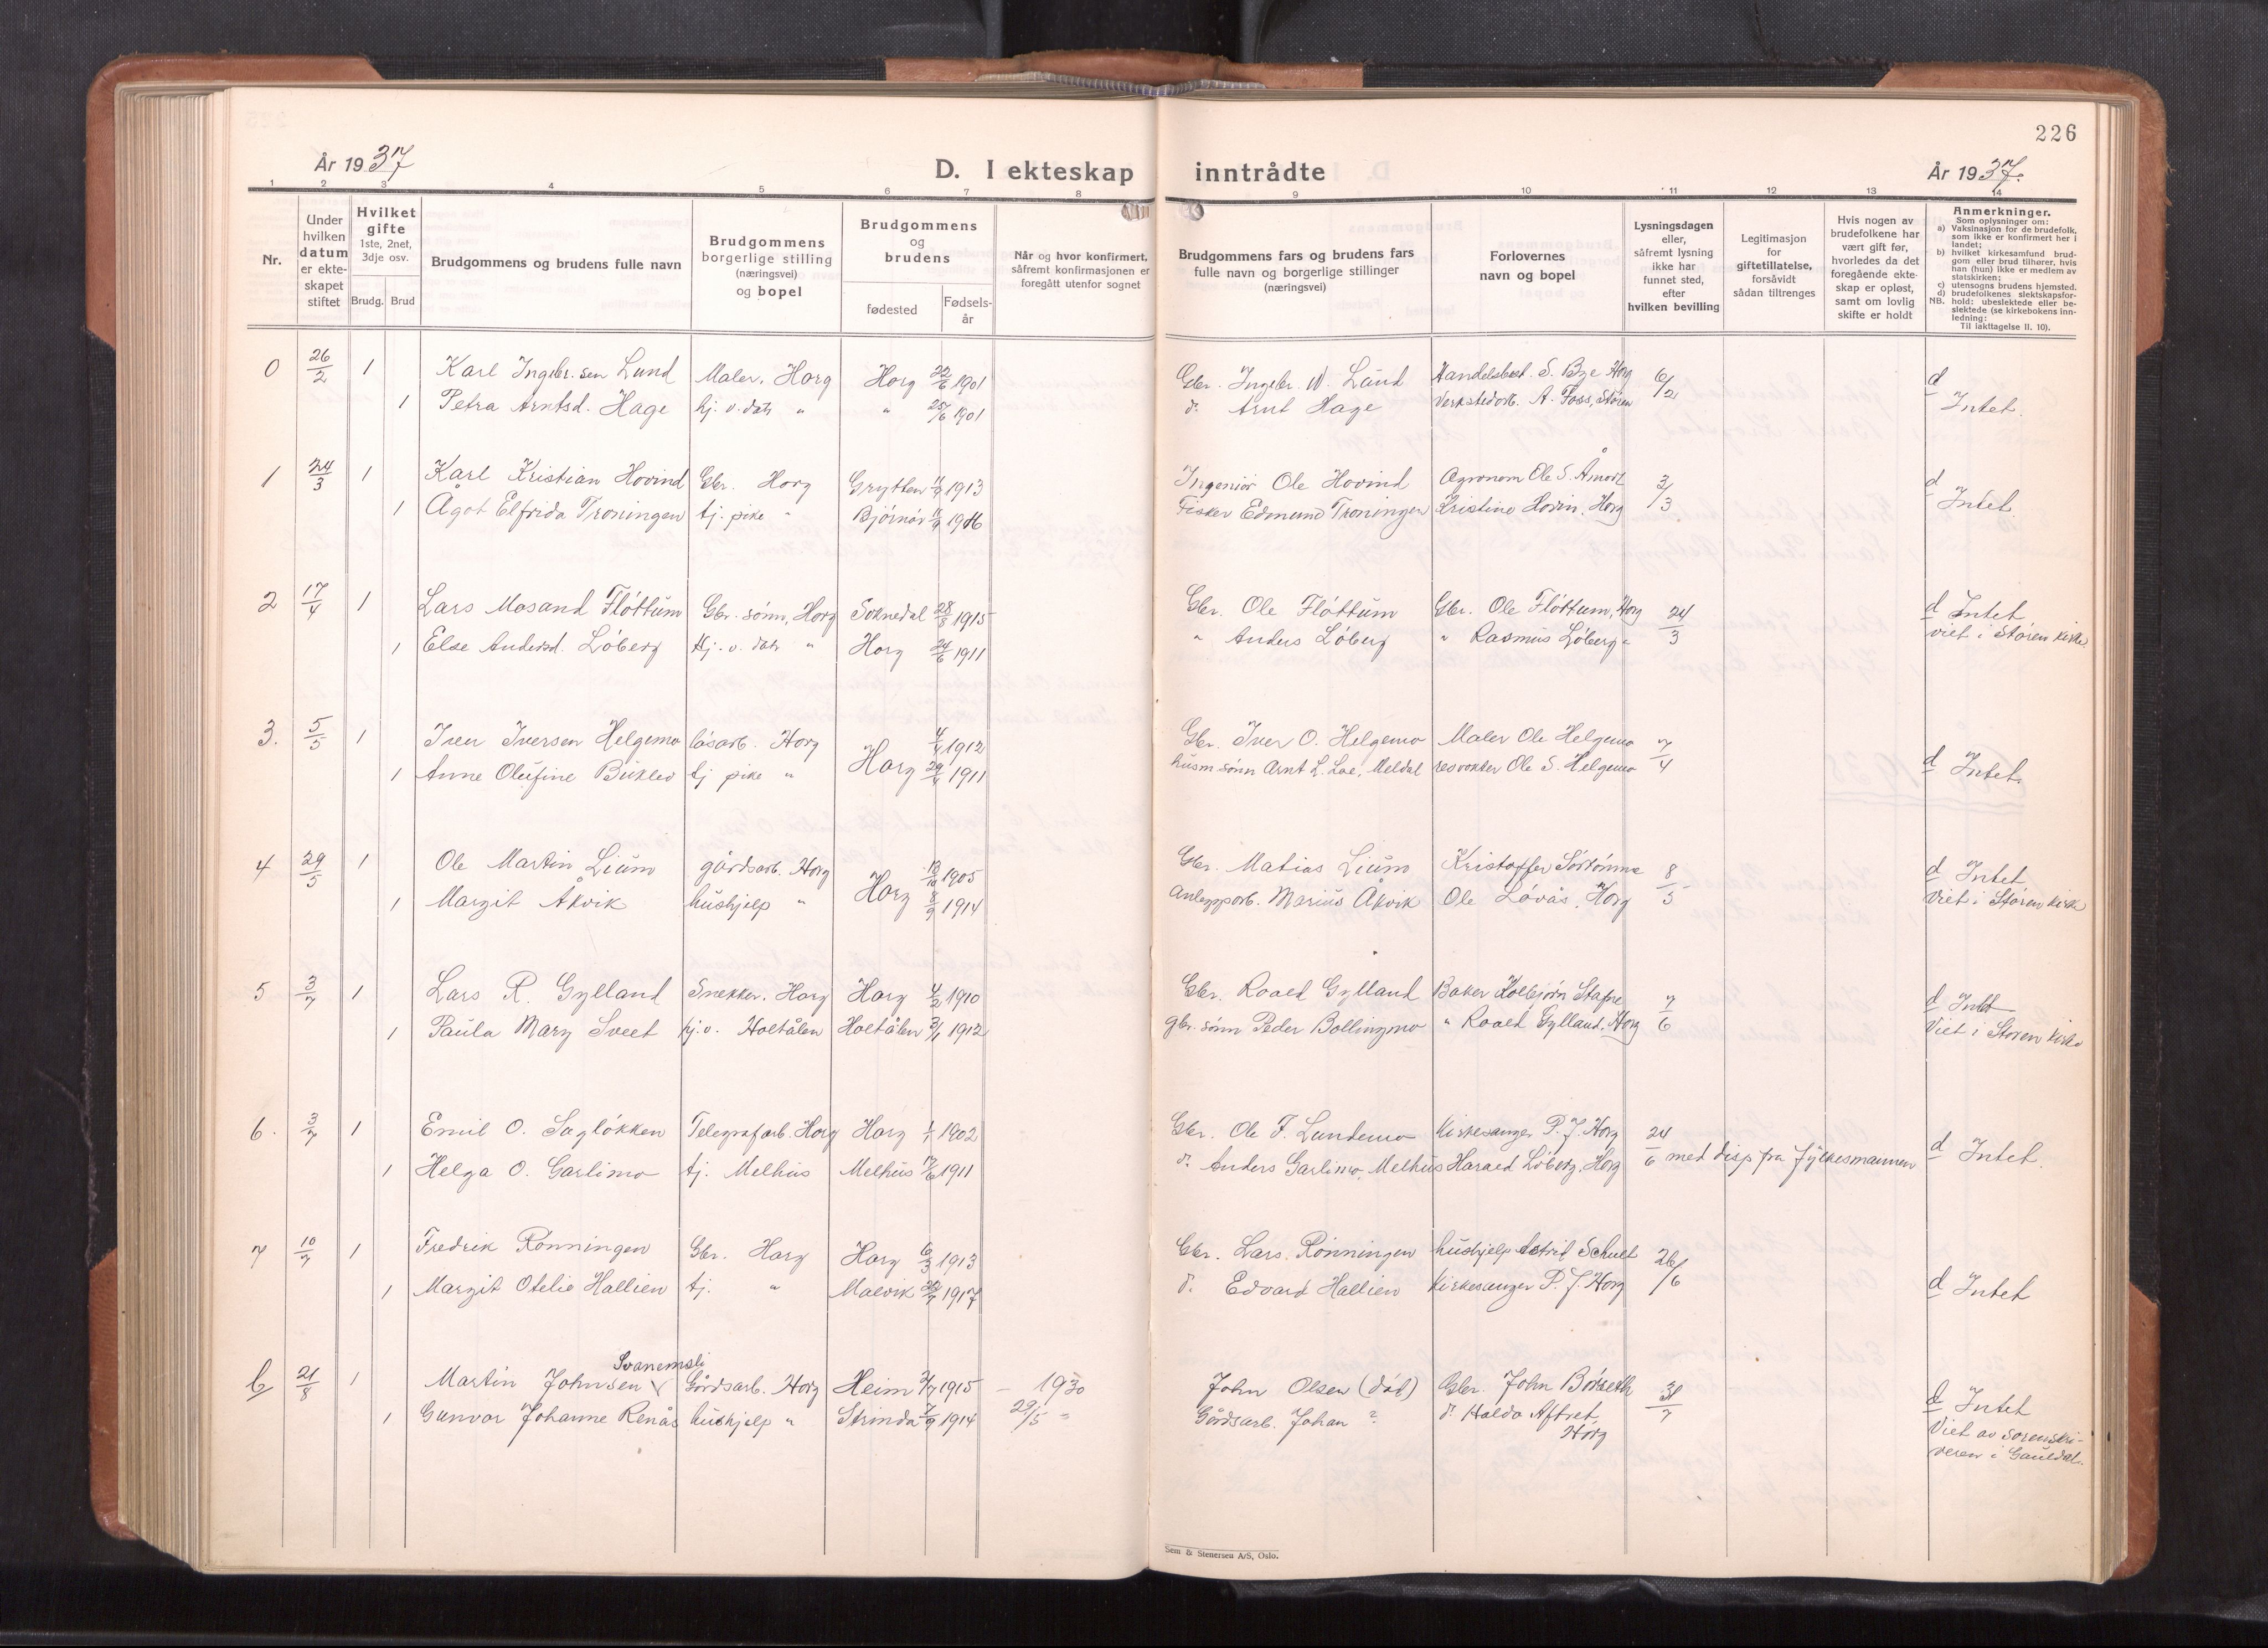 226
År 1937
D. I ekteskap inntrådte
År 1937.
1 2 3 4 5 6 7 8 9 10 11 12 13 14
Nr.
Under hvilken datum er ekteskapet stiftet
Hvilket gifte 1ste, 2net, 3dje osv.
Brudg. Brud
Brudgommens og brudens fulle navn
Brudgommens borgerlige stilling (næringsvei) og bopel
Brudgommens og brudens
fødested
Fødsels-år
Når og hvor konfirmert, såfremt konfirmasjonen er foregått utenfor sognet
Brudgommens fars og brudens fars fulle navn og borgerlige stillinger (næringsvei)
Forlovernes navn og bopel
Lysningsdagen eller, såfremt lysning ikke har funnet sted, efter hvilken bevilling
Legitimasjon for giftetillatelse, forsåvidt sådan tiltrenges
Hvis nogen av brudefolkene har vært gift før, hvorledes da det foregående ekteskap er opløst, samt om lovlig skifte er holdt
Anmerkninger.
Som oplysninger om:
a) Vaksinasjon for de brudefolk, som ikke er konfirmert her i landet;
b) hvilket kirkesamfund brudgom eller brud tilhører, hvis han (hun) ikke er medlem av statskirken;
c) utensogns brudens hjemsted.
d) brudefolkenes slektskapsforhold: ubeslektede eller beslektede (se kirkebokens innledning:
NB. Til iakttagelse II, 10).
0 26/2 1 Karl Ingebr.sen Lund Maler, Horg Horg 22/6 1901 Gbr. Ingebr. N. Lund Handelsbest. S. Bye Horg 6/2 d
1 Petra Arntsd. Hage hj. v. datr " " 25/6 1901 do Arnt Hage Verkstedarb. A. Foss, Støren Intet.
1 24/3 1 Karl Kristian Hovind Gbr. Horg Grytten 11/9 1913 Ingeniør Ole Hovind Agronom Ole S. Åmodt 3/3 d
1 Ågot Elfrida Troningen tj. pike " Bjørnør 11/9 1916 Fisker Edmund Troningen Kristine Hovin, Horg Intet.
2 17/4 1 Lars Mosand Fløttum Gbr. sønn, Horg Soknedal 28/8 1915 Gbr. Ole Fløttum Gbr. Ole Fløttum, Horg 24/3 d Intet
1 Else Andersd. Løberg Hj. v. datr " Horg 24/6 1911 " Anders Løberg " Rasmus Løberg " viet i Støren kirke.
3. 5/5 1 Iver Iversen Helgemo løsarb. Horg Horg 4/4 1912 Gbr. Iver O. Helgemo Maler Ole Helgemo 7/4
1 Anne Olufine Buklev tj pike " 29/4 1911 husm.sønn Arnt L. Loe, Meldal Ole S. Helgemo d Intet.
4 29/5 1 Ole Martin Lium gårdsarb. Horg Horg 13/10 1905 Gbr. Matias Lium Kristoffer Sørtømme 8/5 d Intet
1 Margit Åkvik hushjelp " 8/9 1914 Anleggsarb. Marius Åkvik Ole Løvås, Horg Viet i Støren kirke
5 3/7 1 Lars R. Gylland Snekker. Horg Horg 4/2 1910 Gbr. Roald Gylland Baker Kolbjørn Stafne 7/6 d Intet
1 Paula Mary Sveet hj.v. Holtålen Holtålen 3/1 1912 gbr. sønn Peder Bollingmo " Roald Gylland, Horg Viet i Støren kirke
6. 3/7 1 Emil O. Sagløkken Telegrafarb. Horg Horg 1/1 1902 Gbr. Ole F. Lundemo Kirkesanger P. J. Horg 24/6 med disp fra fylkesmannen
1 Helga O. Garlimo tj. Melhus Melhus 17/6 1911 do Anders Garlimo, Melhus Harald Løberg, Horg d Intet.
7 10/7 1 Fredrik Rønningen Gbr. Horg Horg 6/3 1913 Gbr. Lars Rønningen hushjelp Astrid Schult 26/6
1 Margit Otelie Hallien tj. " Malvik 22/7 1917 do Edvard Hallien Kirkesanger P. J. Horg d Intet
Svanemsli
21/8 1 Martin Johnsen Gårdsarb. Horg Heim 3/7 1915 – 1930 John Olsen (død) Gbr. John Børseth 31/7 d Intet
1 Gunvor Johanne Renås hushjelp " Strinda 7/9 1914 29/5 " Gårdsarb. Johan ? do Haldo Aftret, Horg
Viet av sorenskri-
veren i Gauldal.
Sem & Stenersen A/S, Oslo.